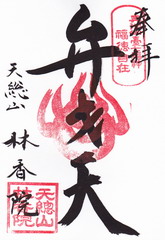 奉拝
福徳自在
弁才天
天総山
林香院
天總山
林香院